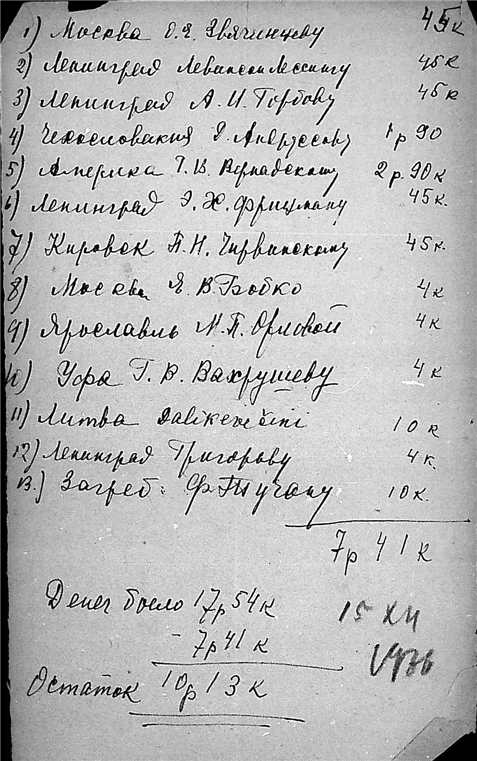 1) Москва О.Е. Звягинцеву 45 к
2) Ленинград Левинсон Лессингу 45 к
3) Ленинград А. И. Горбову 45 к
4) Чехословакия Д. Андрусову 1 р 90
5) Америка Г. В. Вернадскому 2 р. 90 к
6) Ленинград Э. Х. Фрицману 45 к.
7) Кировск П. Н. Чирвинскому 45 к.
8) Москва Я. В. Бобко 4 к
9) Ярославль М. П. Орловой 4 к
10) Уфа Г. В. Вахрушеву 4 к
11) Литва 10 к
12) Ленинград Григорьеву 4 к.
13.) Загреб. Ф. Тучану 10 к.
7 р 41 к
Денег было 17 р 54 к
- 7 р 41 к
15 XII
1936
Остаток 10 р 13 к